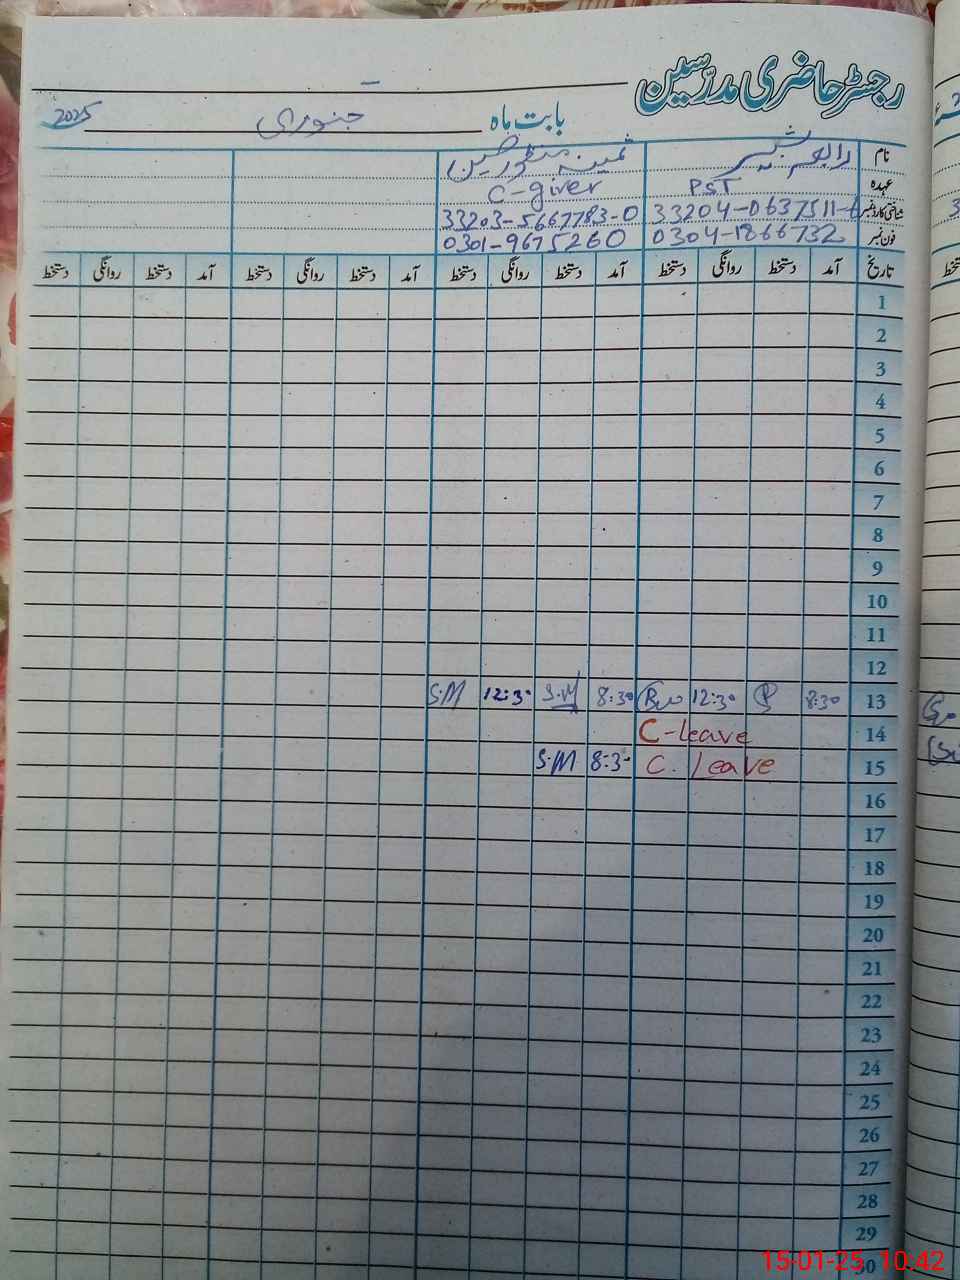 رجسٹر حاضری مدرسین
بابت ماہ جنوری 2025
نام رابعہ بشیر ثمینہ منظور حسین
عہدہ PST C-giver
شناختی کارڈ نمبر 33204-0637511-6 33203-5667783-0
فون نمبر 0304-1866732 0301-9675260
تاریخ آمد دستخط روانگی دستخط آمد دستخط روانگی دستخط آمد دستخط روانگی دستخط آمد دستخط روانگی دستخط
1
2
3
4
5
6
7
8
9
10
11
12
13 8:30 12:30 8:30 S.M 12:30 S.M
14 C-leave
15 C. Leave 8:30 S.M
16
17
18
19
20
21
22
23
24
25
26
27
28
29
30
15-01-25 10:42